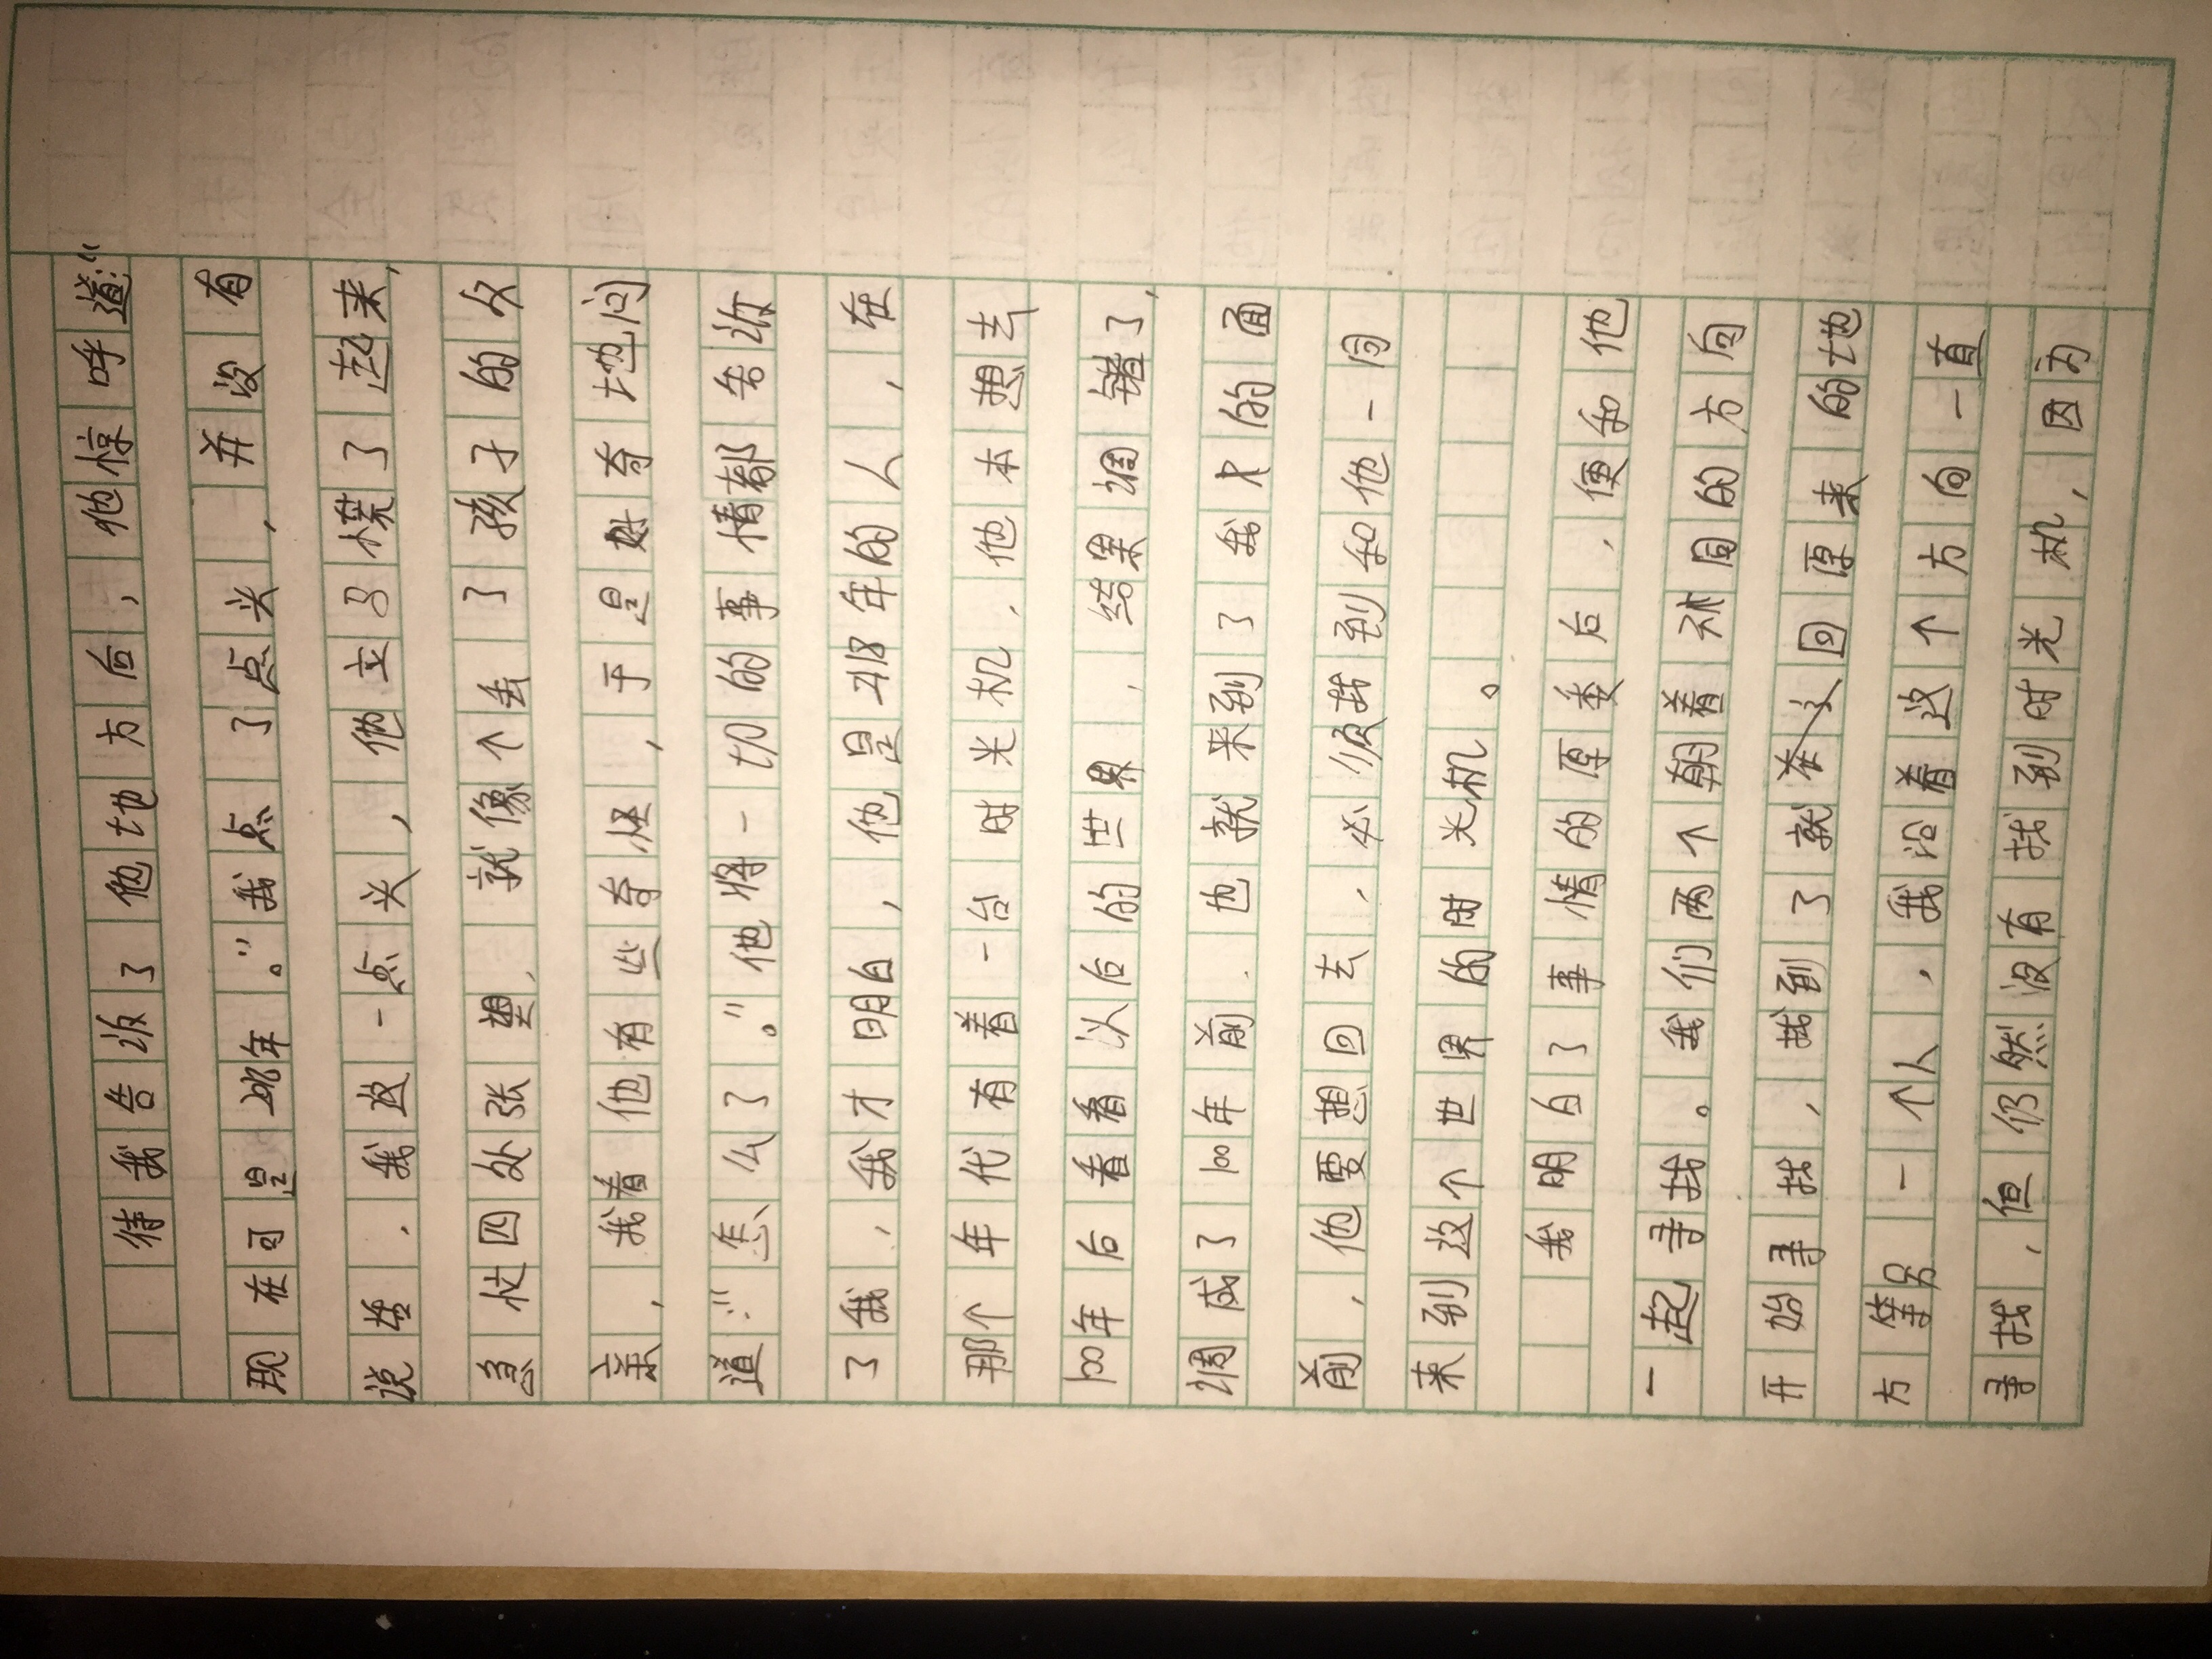 待我告诉了他地方后，他惊呼道：“
现在可是年。”我点了点头，并没有
说话，我这一点头，他立马慌了起来，
急忙四处张望，就像个丢了孩子的父
亲，我看他有些奇怪，于是好奇地问
道：“怎么了。”他将一切的事情都告诉
了我，我才明白，他是2118年的人，在
那个年代有着一台时光机，他本想去
100年后看看以后的世界，结果调错了，
调成了100年前，也就来到了我的面
前，他要想回去，必须找到和他一同
来到这个世界的时光机。
我明白了事情的原委后，便和他
一起寻找。我们两个朝着不同的方向
开始寻找，找到了就回原来的地
方等另一个人，我沿着这个方向一直
寻找，但仍然没有找到时光机，因为